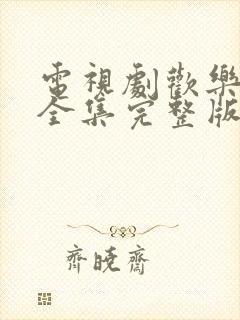 電視劇歡樂
全集完整版
齊曉齋